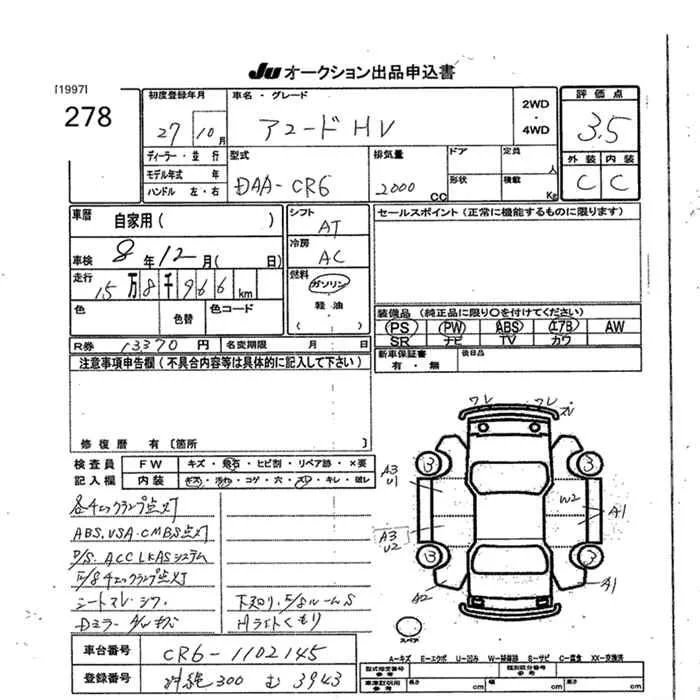 Ju オークション出品申込書
[1997]
278
初度登録年月
27 10月
車名・グレード
アコード HV
2WD
・
4WD
評価点
3.5
外装 内装
C C
ディーラー・並行
モデル年式 年
ハンドル 左・右
型式
DAA-CR6
排気量
2000 CC
ドア
形状
定員 人
積載 Kg
車歴 自家用( )
車検 8年12月( 日)
走行 15万8千966km
色 色替 色コード
シフト
AT
冷房
AC
燃料
ガソリン
軽油
( )
セールスポイント(正常に機能するものに限ります)
装備品(純正品に限り○を付けてください)
PS PW ABS エアB AW
SR ナビ TV カワ
R券 13370円 名変期限 月 日
新車保証書
有・無
後日品
注意事項申告欄(不具合内容等は具体的に記入して下さい)
修復歴 有〔箇所 〕
検査員
記入欄
FW キズ・飛石・ヒビ割・リペア跡・×要
内装 キズ・汚れ・コゲ・穴・スレ・キレ・破レ
各チェックランプ点灯
ABS.VSA.CMBS点灯
P/S. ACC LKASシステム
E/Bチェックランプ点灯
シートスレ・シワ
下廻り.E/BルームS
Dミラー
Hライトくもり
ワレ ワレ
3 3
A3
U1
W2
A1
A3
U2
3 3
A2
A1
スペア
車台番号 CR6-1102145
登録番号 300 む 3943
A-キズ E-エクボ U-凹み W-補修跡 S-サビ C-腐食 XX-交換済
型式指定番号 類別区分番号
長さ cm 幅 cm 高さ cm